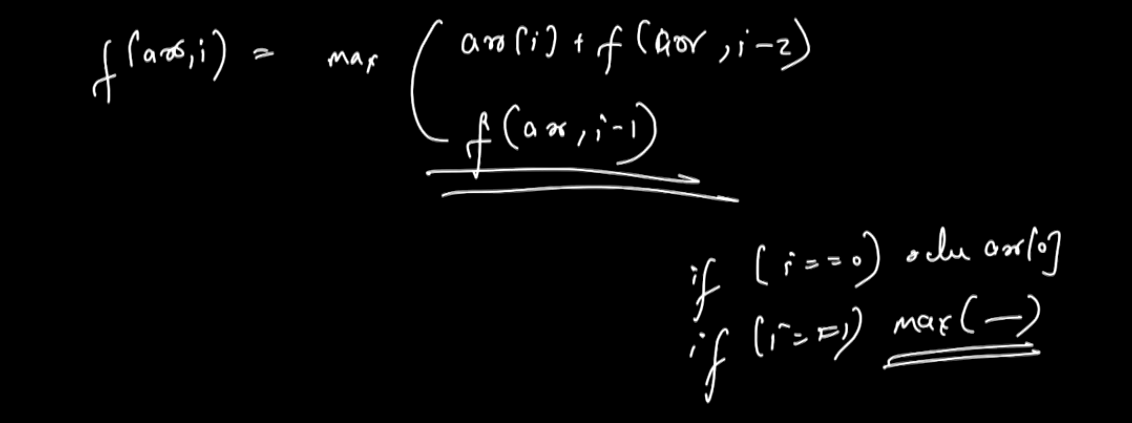 f(arr,i) = max ( arr[i] + f(arr,i-2)
f(arr,i-1)
if (i==0) return arr[0]
if (i==1) max(—)